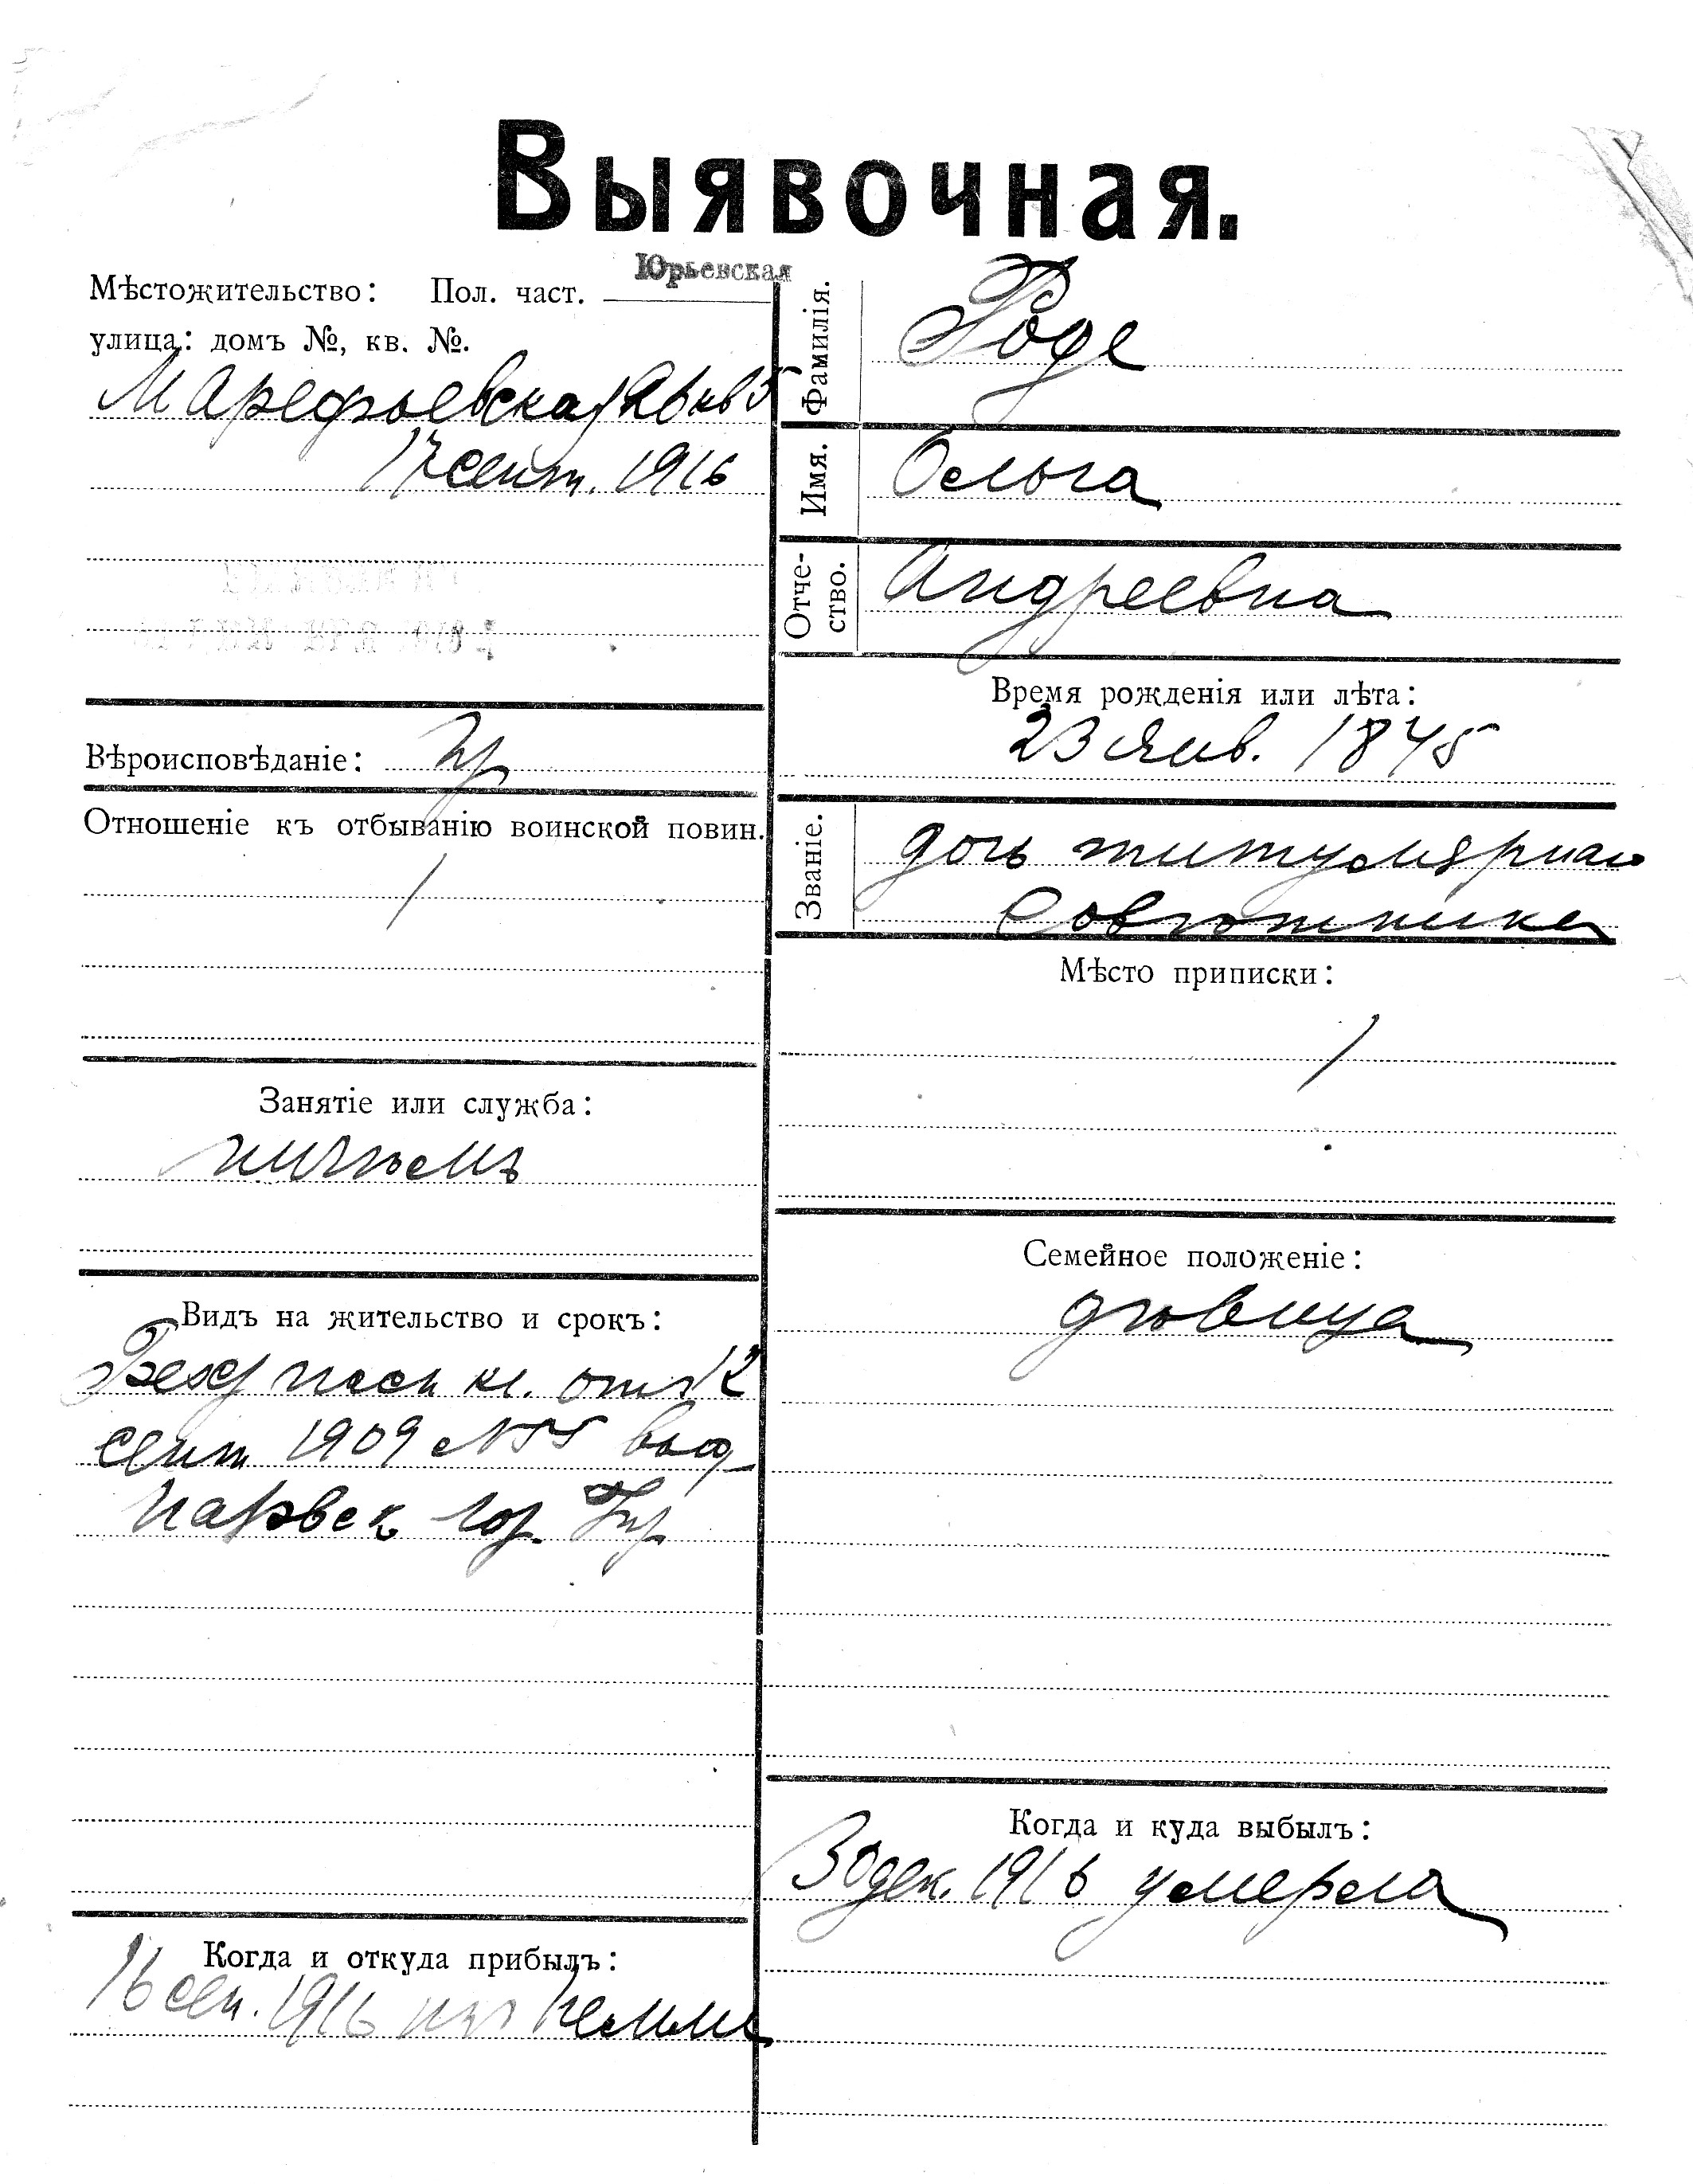 Выявочная.
Мѣстожительство: Пол. част. Юрьевская
улица: домъ №, кв. №.
26 кв 5
17 сент. 1916
Вѣроисповѣданіе:
Отношеніе къ отбыванію воинской повин.
/
Занятіе или служба:
ничѣмъ
Видъ на жительство и срокъ:
пасп кн. отъ 12
сент 1909 выд
гор.
Когда и откуда прибылъ:
16 сен. 1916 изъ
Фамилія.
Роде
Имя.
Ольга
Отче-
ство.
Андреевна
Время рожденія или лѣта:
23 Янв. 1845
Званіе.
дочь титулярнаго
Совѣтника
Мѣсто приписки:
/
Семейное положеніе:
дѣвица
Когда и куда выбылъ:
30 дек. 1916 умерла